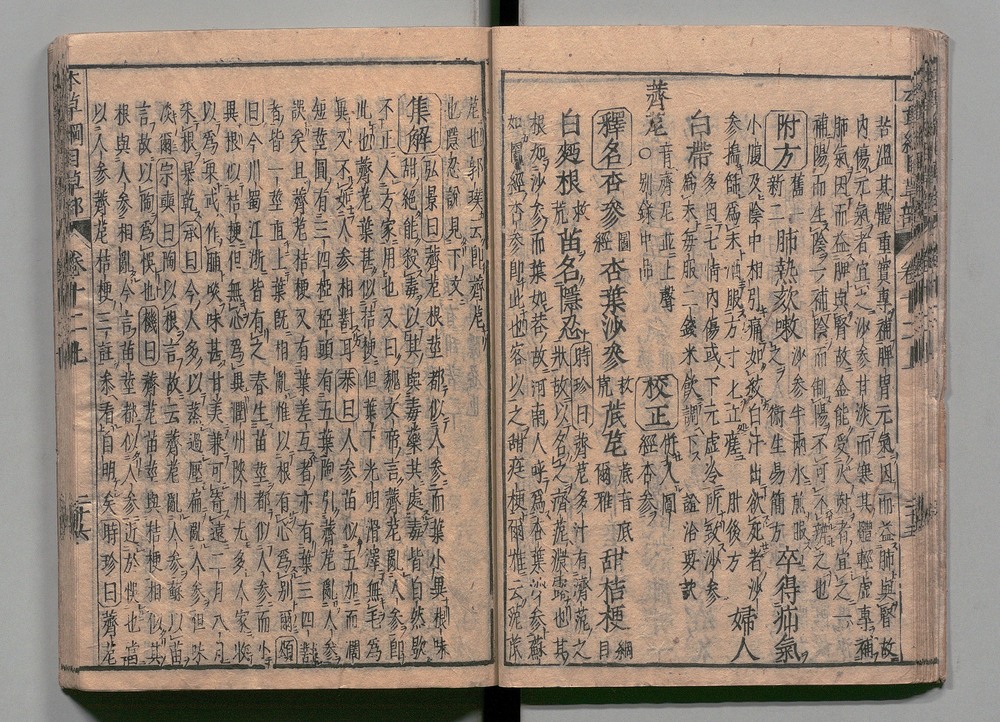 苦溫其體重實專補脾胃元氣因而益肺與腎故
內傷元氣者宜之沙參甘淡而寒其體輕虛專補
肺氣因而益脾與腎故金能受火尅者宜之一
補陽而生陰一補陰而制陽不可不辨之也
附方 舊一新二 肺熱欬嗽 沙參半兩水煎服之衛生易簡方 卒得疝氣
小腹及陰中相引痛如絞自汗出欲死者沙
參搗篩爲末酒服方寸匕立瘥 肘後方 婦人
白帶 多因七情內傷或下元虛冷所致沙參爲末每服二錢米飲調下 證治要訣
薺苨 音齊尼並上聲 ○別錄中品 校正 併入圖經杏參
釋名 杏參 圖經 杏葉沙參 救荒 菧苨 菧音底爾雅 甜桔梗 綱目
白麪根 救荒 苗名隱忍 時珍曰薺苨多汁有濟苨之狀故以名之濟苨濃露也其
根如沙參而葉如杏故河南人呼爲杏葉沙參蘇
圖經杏參即此也俗以之甜桔梗爾雅云苨菧
苨也郭璞云即薺苨
也隱忍說見下文
集解 弘景曰薺苨根莖都似人參而葉小異根味
甜絕能殺毒以其與毒藥共處毒皆自然歇
不正入方家用也又曰魏文帝言薺苨亂人參即
此也薺苨葉甚似桔梗但葉下光明滑澤無毛爲
異又不如人參相對耳恭曰人參苗似五加而濶
短莖圓有三四椏椏頭有五葉陶引薺苨亂人參
誤矣且薺苨桔梗又有葉差互者亦有葉三四對
者皆一莖直上葉既相亂惟以根有心爲別爾頌
曰今川蜀江浙皆有之春生苗莖都似人參而小
異根似桔梗但無心爲異潤州陝州尤多人家收
以爲果或作脯啖味甚甘美兼可寄遠二月八月
采根暴乾承曰今人多以蒸過壓扁亂人參但味
淡爾宗奭曰陶以根言故云薺苨亂人參蘇以苗
言故以陶爲悞也機曰薺苨苗莖與桔梗相似其
根與人參相亂今言苗莖都似人參近於悞也當
以人參薺苨桔梗三註參看自明矣時珍曰薺苨
本草綱目草部 卷十二上